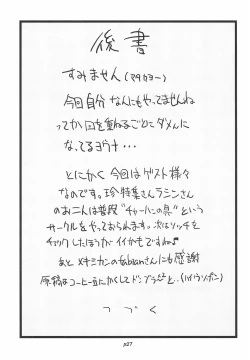 後書
すみません(マタカヨー)
今回自分なんにもやってませんね
ってか回を重ねるごとにダメんに
なってるヨウナ・・・
とにかく今回はゲスト様々
なのです。珍特集さんラシンさん
のお二人は普段"チャーハンの具"という
サークルをやっておられます。次はソッチを
チェックしたほうがイイかもですね♪
あとメキミカンのfabianさんにも感謝
原稿はコーヒー豆にかくして
つづく
p27